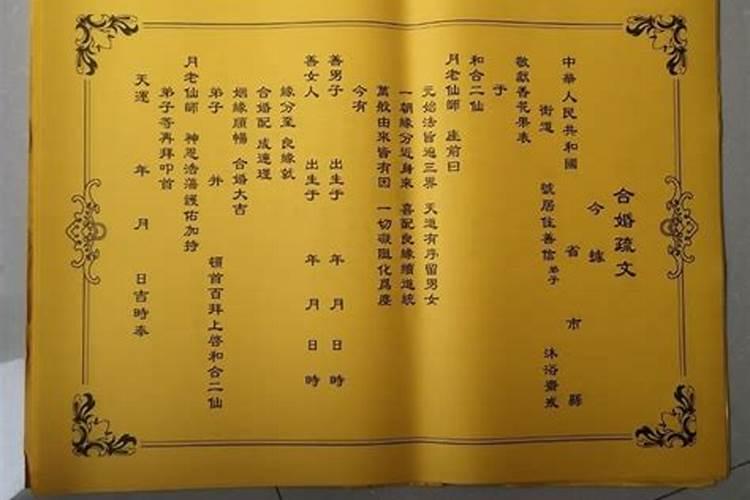 合婚疏文
今據
中華人民共和國 省 市 縣
街道 號居住善信 弟子 沐浴齋戒
敬獻香花果表
于
和合二仙
月老仙師 座前曰
元始法旨遍三界 天道有序留男女
一朝緣分近身來 喜配良緣續道統
萬般由來皆有因 一切礙阻化爲塵
今有
善男子 出生于 年 月 日 時
善女人 出生于 年 月 日 時
緣分至 良緣就
合婚配 成連理
姻緣順暢 合婚大吉
弟子 并 頓首百拜上啓和合二仙
月老仙師 神恩浩蕩護佑加持
弟子等再拜叩首
天運 年 月 日吉時奉